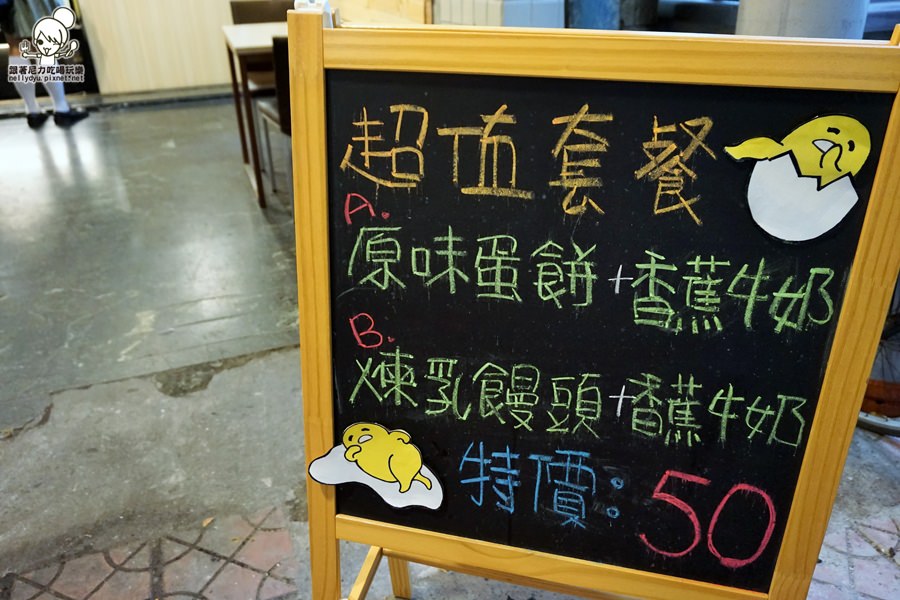 跟著尼力吃喝玩樂
nellydyu.pixnet.net
超值套餐
A.
原味蛋餅+香蕉牛奶
B.
煉乳饅頭+香蕉牛奶
特價:50